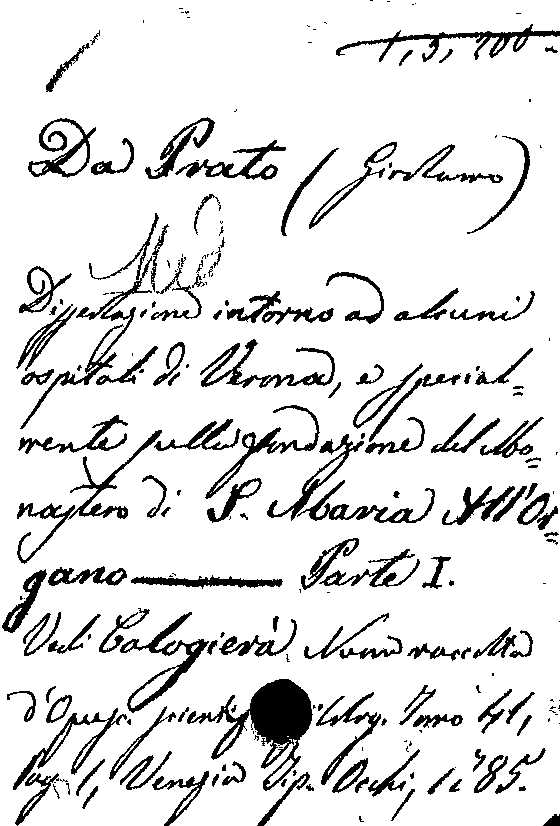 1, 5, 200-
Da Prato (Girolamo)
Med
Dissertazione intorno ad alcuni
ospitali di Verona, e special=
mente sulla fondazione del Mo=
nastero di S. Maria All'Or=
gano — Parte I.
Vedi Calogierà Nuova raccolta
d'Opusc. scientif filolog. Tomo 41,
Pag 1, Venezia Tip. Occhi, 1785.